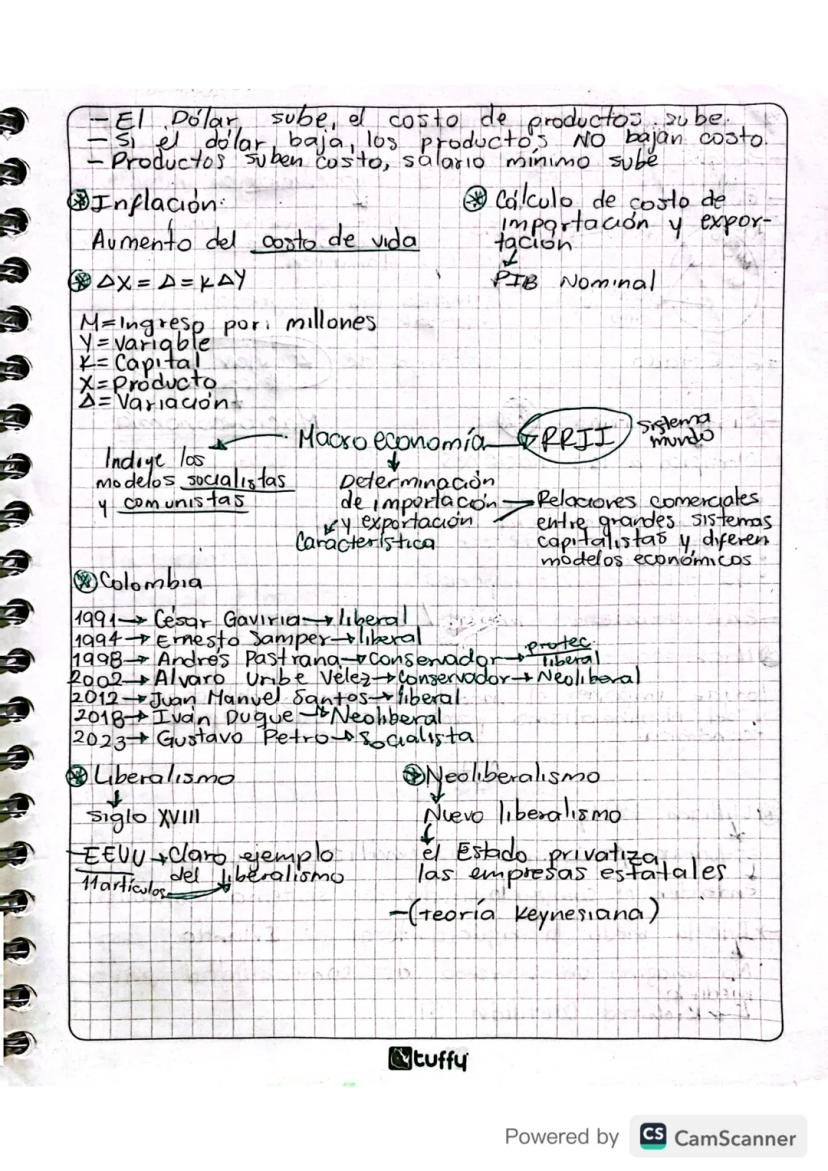 - El Dólar sube, el costo de productos sube.
- Si el dólar baja, los productos NO bajan costo.
- Productos suben costo, salario mínimo sube
Inflación:
Aumento del costo de vida
Cálculo de costo de
importación y expor-
tación
↓
PIB Nominal
ΔX = Δ = KΔY
M=Ingreso por: millones
Y=variable
K=Capital
X=Producto
Δ=Variación
Macroeconomía → RRII
Sistema
mundo
Indiye los
modelos socialistas
y comunistas
Determinación
de importación
y exportación
Característica
Relaciones comerciales
entre grandes sistemas
capitalistas y diferen
modelos económicos
Colombia
1991→ César Gaviria→liberal
1994→ Ernesto Samper→liberal
1998→ Andrés Pastrana→conservador→ protec. liberal
2002→ Alvaro Uribe Vélez→conservador→Neoliberal
2012→Juan Manuel Santos→liberal
2018→Iván Duque→Neoliberal
2023→ Gustavo Petro→Socialista
Liberalismo
↓
siglo XVIII
-EEUU→Claro ejemplo
del liberalismo
11 artículos
Neoliberalismo
↓
Nuevo liberalismo
↓
el Estado privatiza
las empresas estatales
-(teoría Keynesiana)
tuffy
Powered by CS CamScanner